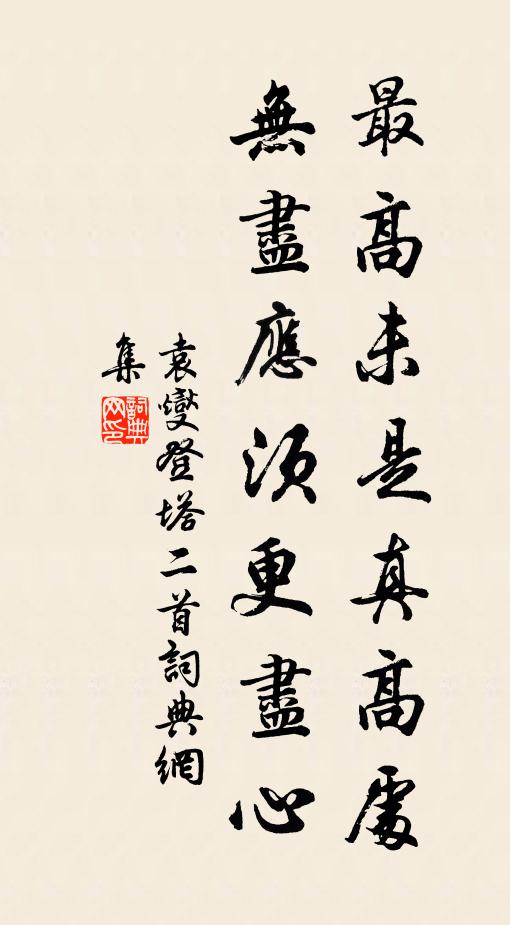 最高未是真高處
無盡應須更盡心
袁燮登塔二首詞典網
集
詞典
网印